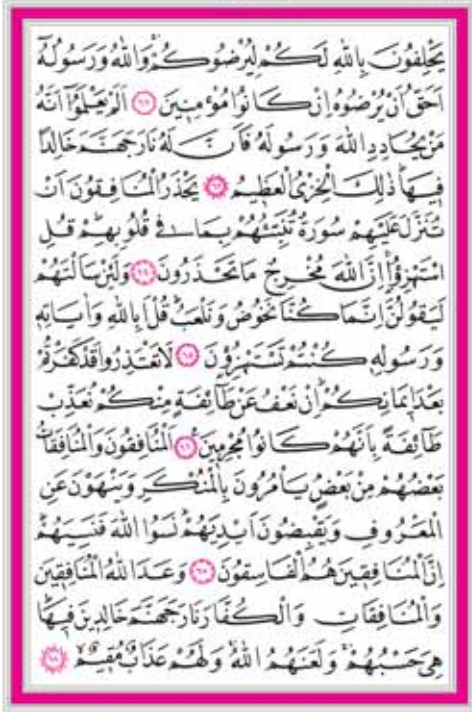 يَحْلِفُونَ بِاللّٰهِ لَكُمْ لِيُرْضُوكُمْ وَاللّٰهُ وَرَسُولُهُٓ
اَحَقُّ اَنْ يُرْضُوهُ اِنْ كَانُوا مُؤْمِنٖينَ ﴿٦٢﴾ اَلَمْ يَعْلَمُٓوا اَنَّهُ
مَنْ يُحَادِدِ اللّٰهَ وَرَسُولَهُ فَاَنَّ لَهُ نَارَ جَهَنَّمَ خَالِدًا
فٖيهَا ذٰلِكَ الْخِزْىُ الْعَظٖيمُ ﴿٦٣﴾ يَحْذَرُ الْمُنَافِقُونَ اَنْ
تُنَزَّلَ عَلَيْهِمْ سُورَةٌ تُنَبِّئُهُمْ بِمَا فٖى قُلُوبِهِمْ قُلِ
اسْتَهْزِؤُ۫ا اِنَّ اللّٰهَ مُخْرِجٌ مَا تَحْذَرُونَ ﴿٦٤﴾ وَلَئِنْ سَاَلْتَهُمْ
لَيَقُولُنَّ اِنَّمَا كُنَّا نَخُوضُ وَنَلْعَبُ قُلْ اَبِاللّٰهِ وَاٰيَاتِهٖ
وَرَسُولِهٖ كُنْتُمْ تَسْتَهْزِؤُ۫نَ ﴿٦٥﴾ لَا تَعْتَذِرُوا قَدْ كَفَرْتُمْ
بَعْدَ اٖيمَانِكُمْ اِنْ نَعْفُ عَنْ طَٓائِفَةٍ مِنْكُمْ نُعَذِّبْ
طَٓائِفَةً بِاَنَّهُمْ كَانُوا مُجْرِمٖينَ ﴿٦٦﴾ اَلْمُنَافِقُونَ وَالْمُنَافِقَاتُ
بَعْضُهُمْ مِنْ بَعْضٍ يَاْمُرُونَ بِالْمُنْكَرِ وَيَنْهَوْنَ عَنِ
الْمَعْرُوفِ وَيَقْبِضُونَ اَيْدِيَهُمْ نَسُوا اللّٰهَ فَنَسِيَهُمْ
اِنَّ الْمُنَافِقٖينَ هُمُ الْفَاسِقُونَ ﴿٦٧﴾ وَعَدَ اللّٰهُ الْمُنَافِقٖينَ
وَالْمُنَافِقَاتِ وَالْكُفَّارَ نَارَ جَهَنَّمَ خَالِدٖينَ فٖيهَا
هِىَ حَسْبُهُمْ وَلَعَنَهُمُ اللّٰهُ وَلَهُمْ عَذَابٌ مُقٖيمٌ ﴿٦٨﴾